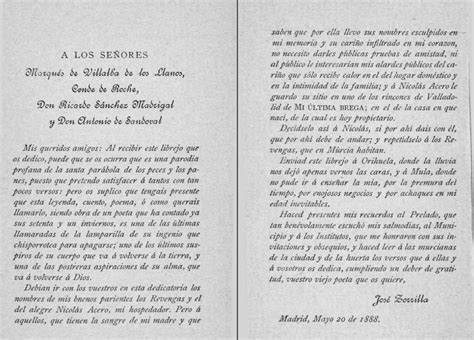 A LOS SEÑORES
Marqués de Villalba de los Llanos,
Conde de Roche,
Don Ricardo Sánchez Madrigal
y Don Antonio de Sandoval
Mis queridos amigos: Al recibir este librejo que
os dedico, puede que se os ocurra que es una parodia
profana de la santa parábola de los peces y los pa-
nes, puesto que pretendo satisfacer á tantos con tan
pocos versos: pero os suplico que tengais presente
que esta leyenda, cuento, poema, ó como querais
llamarlo, siendo obra de un poeta que ha contado ya
sus setenta y un inviernos, es una de las últimas
llamaradas de la lamparilla de su ingenio que
chisporrotea para apagarse; uno de los últimos sus-
piros de su cuerpo que va á volverse á la tierra, y
una de las postreras aspiraciones de su alma, que
va á volverse á Dios.
Debian ir con los vuestros en esta dedicatoria los
nombres de mis buenos parientes los Revengas y el
del alegre Nicolás Acero, mi hospedador. Pero á
aquellos, que tienen la sangre de mi madre y que
saben que por ella llevo sus nombres esculpidos en
mi memoria y su cariño infiltrado en mi corazon,
no necesito darles públicas pruebas de amistad, ni
al público le interesarian mis alardes públicos del ca-
riño que sólo recibe calor en el del hogar doméstico y
en la intimidad de la familia; y á Nicolás Acero le
guardo su sitio en uno de los rincones de Vallado-
lid de MI ÚLTIMA BREGA; en el de la casa en que
nací, de la cual es hoy propietario.
Decídselo así á Nicolás, si por ahí dais con él,
que por ahí debe de andar; y repetídselo á los Re-
vengas, que en Múrcia habitan.
Enviad este librejo á Orihuela, donde la lluvia
nos dejó apenas vernos las caras, y á Mula, donde
no pude ir en demanda de la mia, por la premura del
tiempo, por enojosos negocios y por achaques en mi
edad inevitables.
Haced presentes mis recuerdos al Prelado, que
tan benévolamente escuchó mis salmodias, al Muni-
cipio y á los Institutos, que me honraron con sus in-
vitaciones y obsequios, y á haced leer á las murcianas
de la ciudad y de la huerta los versos que á ellas y
á vosotros os dedica, cumpliendo un deber de grati-
tud, vuestro viejo poeta que os quiere,
José Zorrilla
Madrid, Mayo 20 de 1888.